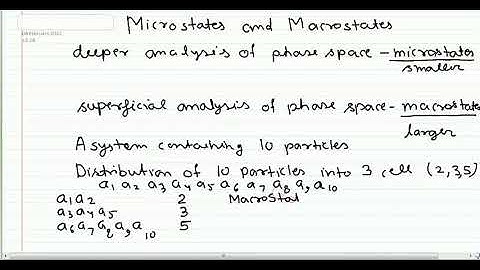 Microstates and Macrostates
deeper analysis of phase space - microstates
smaller
superficial analysis of phase space - macrostates
larger
A system containing 10 particles
Distribution of 10 particles into 3 cell (2,3,5)
a1 a2 a3 a4 a5 a6 a7 a8 a9 a10
a1 a2 2 Macrostat
a3 a4 a5 3
a6 a7 a8 a9 a10 5